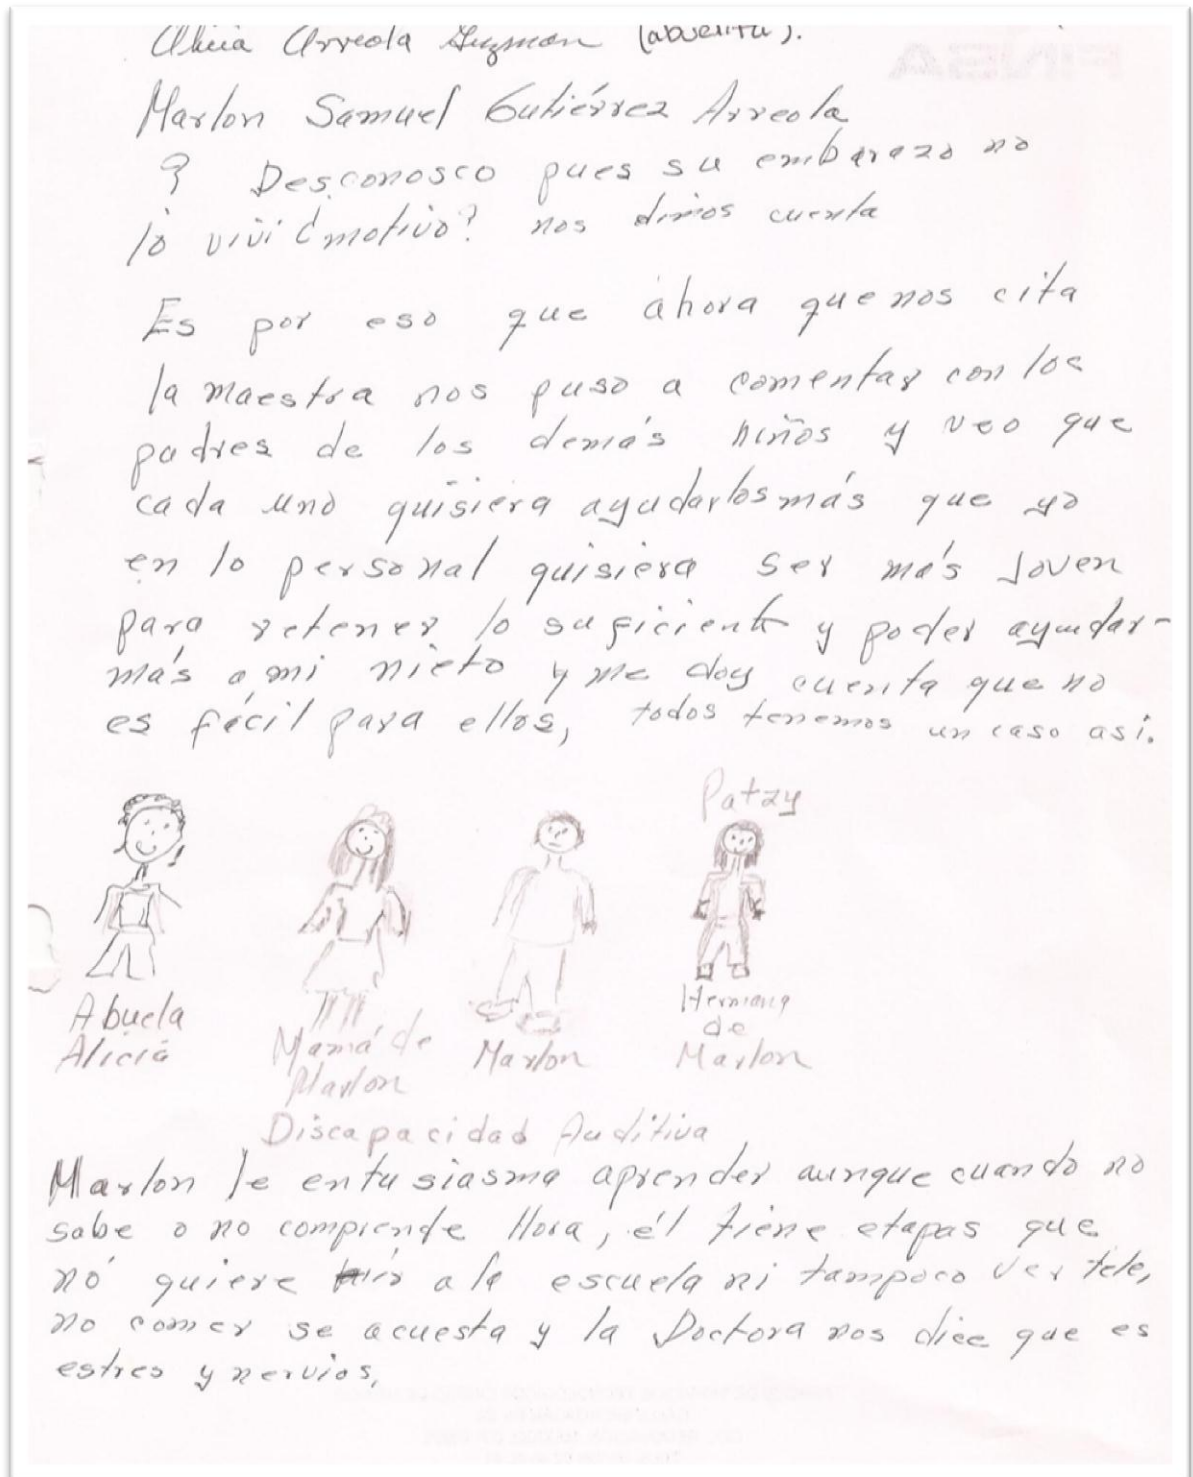 Alicia Arreola Guzmán (abuelita).
Marlon Samuel Gutiérrez Arreola
? Desconosco pues su embarazo no
lo viví ¿motivo? nos dimos cuenta
Es por eso que ahora que nos cita
la maestra nos puso a comentar con los
padres de los demás niños y veo que
cada uno quisiera ayudarlos más que yo
en lo personal quisiera ser más joven
para retener lo suficiente y poder ayudar-
más a mi nieto y me doy cuenta que no
es fácil para ellos, todos tenemos un caso así.
Patzy
Abuela
Alicia
Mamá de
Marlon
Marlon
Hermana
de
Marlon
Discapacidad Auditiva
Marlon le entusiasma aprender aunque cuando no
sabe o no comprende llora, él tiene etapas que
nó quiere ir a la escuela ni tampoco ver tele,
no comer se acuesta y la Doctora nos dice que es
estres y nervios,
FINSA